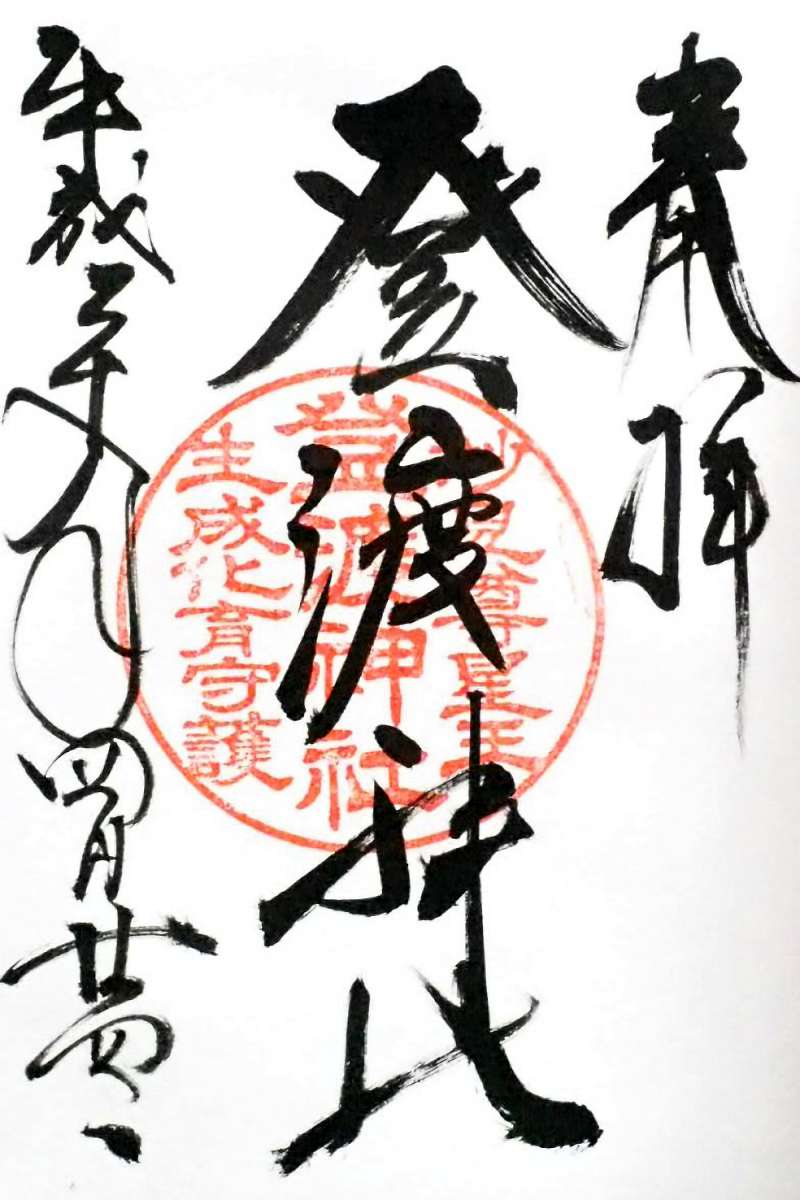 奉拝
登渡神社
妙見尊星王
登渡神社
生成化育守護
平成二十九年四月廿四日